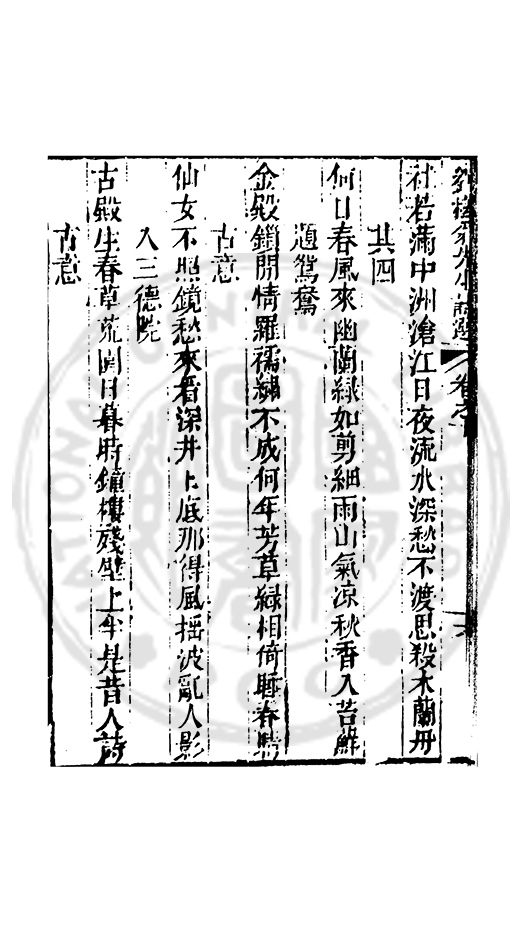 卷之
杜若滿中洲滄江日夜流水深愁不渡思殺木蘭舟
其四
何日春風來幽蘭綠如剪細雨山氣凉秋香入苔觧
題鴛鴦
金殿鎖閒情羅襦繡不成何年芳草綠相倚睡春晴
古意
仙女不照鏡愁來看深井上底那得風揺波亂人影
入三德院
古殿生春草荒園日暮時鐘樓殘壁上半是昔人詩
古意